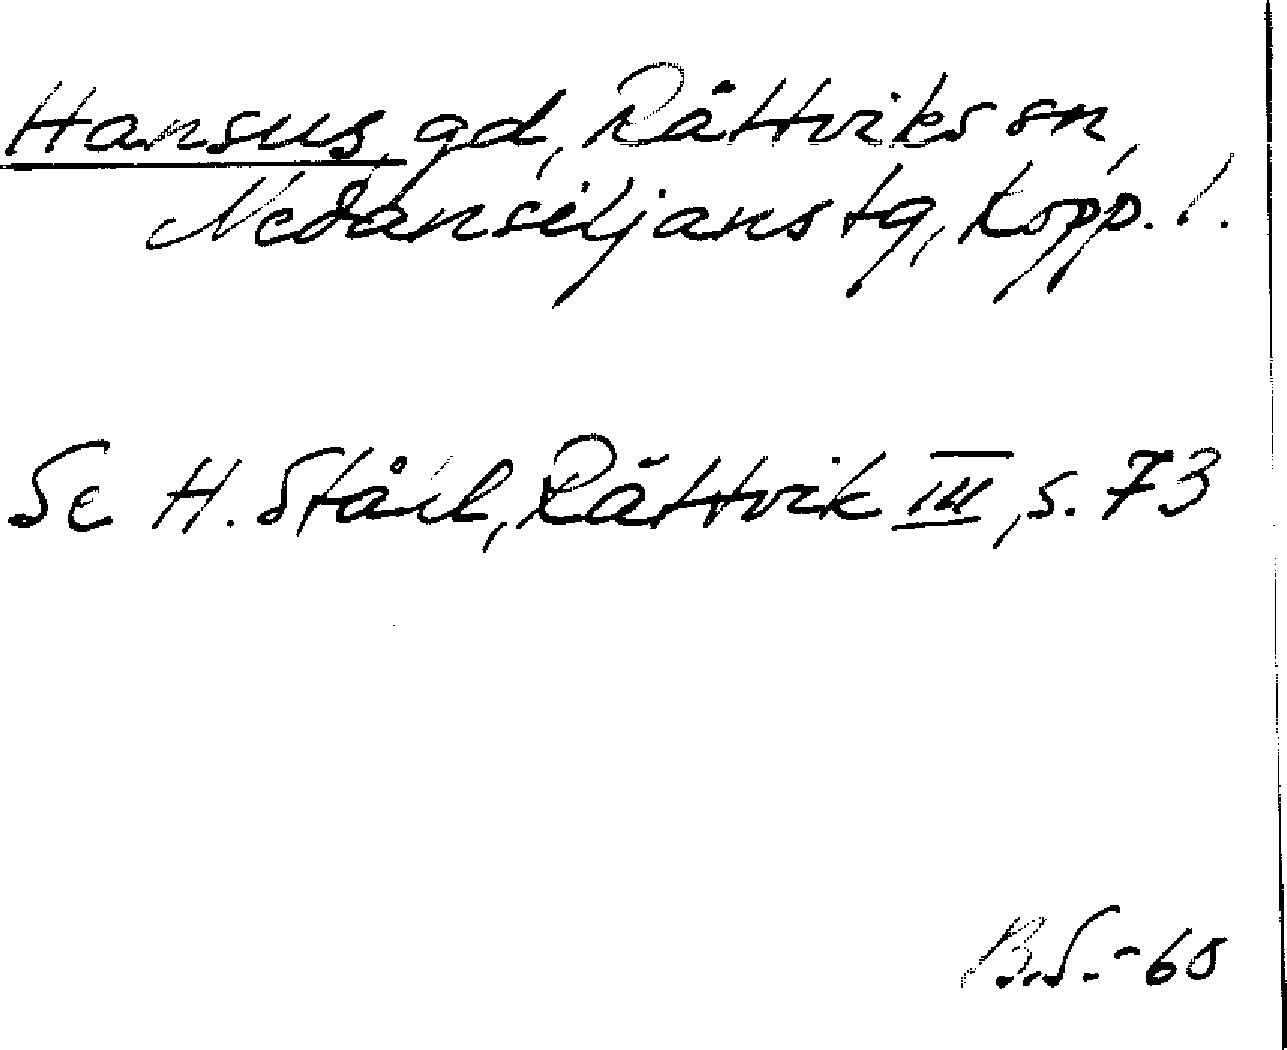 Hansus, gd, Rättviks sn,
Nedansiljans tg, Kopp. l.
Se H. Ståhl, Rättvik III, s. 73
B.S. -60